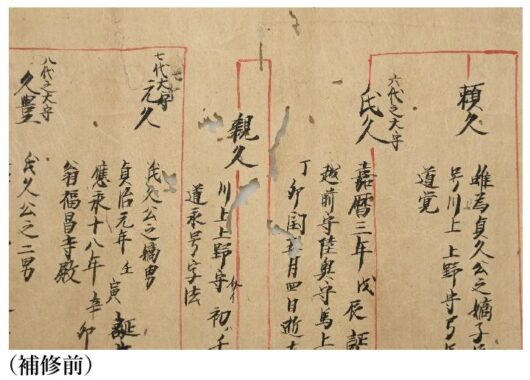 頼久
雖為貞久公之嫡子
号川上上野守
道覚
六代之大守
氏久
嘉暦三年戊辰
越前守陸奥守
丁卯閏五月四日逝
親久
川上上野守初
道永号字法
七代大守
元久
氏久公之嫡男
貞治元年壬寅
應永十八年辛卯
翁福昌寺殿
八代之大守
久豊
氏久公之二男
（補修前）